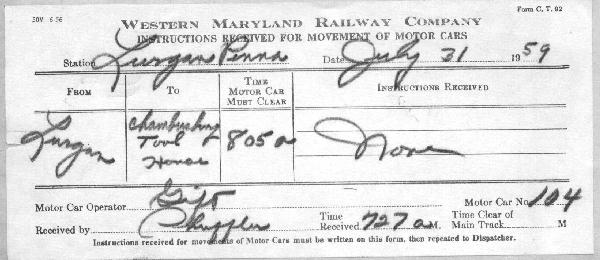 50M 6-56
Form C. T. 92
WESTERN MARYLAND RAILWAY COMPANY
INSTRUCTIONS RECEIVED FOR MOVEMENT OF MOTOR CARS
Station Lurgan Penna Date July 31 1959
FROM TO TIME MOTOR CAR MUST CLEAR INSTRUCTIONS RECEIVED
Lurgan Chambersburg Tool House 805 a None
Motor Car Operator Gift Motor Car No. 104
Received by Time Received 727 a M. Time Clear of Main Track M
Instructions received for movements of Motor Cars must be written on this form, then repeated to Dispatcher.